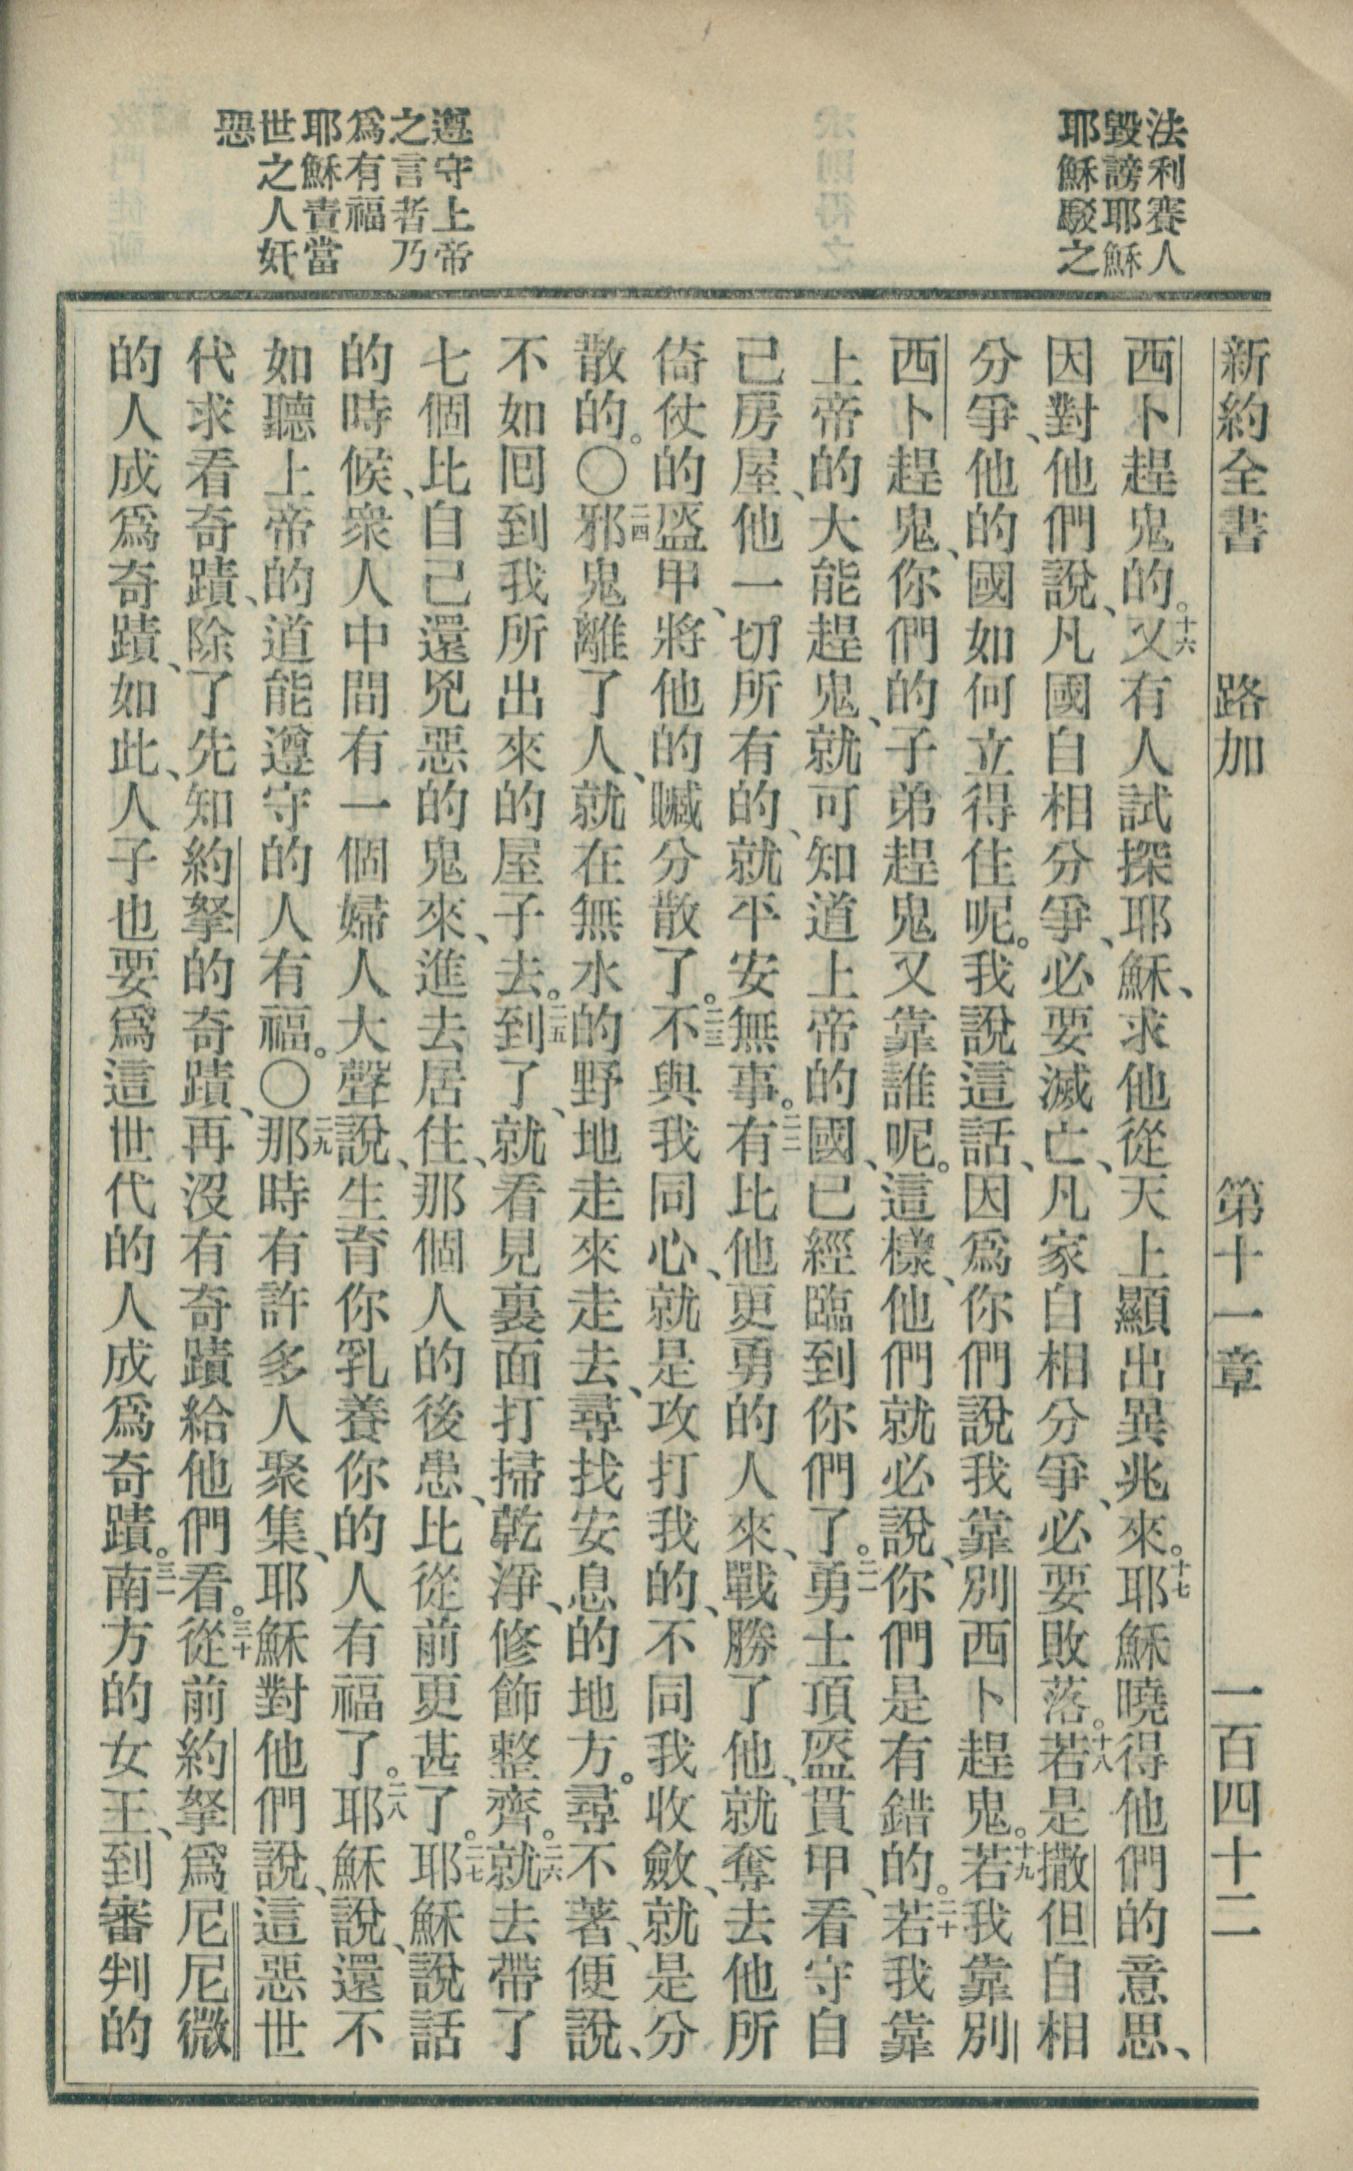 新約全書　路加　第十一章　一百四十二
法利賽人
毀謗耶穌
耶穌駁之
遵守上帝
之言者乃
爲有福
耶穌責當
世之人奸
惡
西卜趕鬼的。十六又有人試探耶穌、求他從天上顯出異兆來。十七耶穌曉得他們的意思、
因對他們說、凡國自相分爭、必要滅亡、凡家自相分爭、必要敗落。十八若是撒但自相
分爭、他的國如何立得住呢。我說這話、因爲你們說我靠別西卜趕鬼。十九若我靠別
西卜趕鬼、你們的子弟趕鬼又靠誰呢。這樣、他們就必說、你們是有錯的。二十若我靠
上帝的大能趕鬼、就可知道上帝的國、已經臨到你們了。二一勇士頂盔貫甲、看守自
己房屋、他一切所有的、就平安無事。二二有比他更勇的人來、戰勝了他、就奪去他所
倚仗的盔甲、將他的贓分散了。二三不與我同心、就是攻打我的、不同我收斂、就是分
散的。〇二四邪鬼離了人、就在無水的野地走來走去、尋找安息的地方。尋不著、便說、
不如囘到我所出來的屋子去。二五到了、就看見裏面打掃乾淨、修飾整齊。二六就去帶了
七個比自己還兇惡的鬼來、進去居住、那個人的後患、比從前更甚了。二七耶穌說話
的時候、衆人中間有一個婦人大聲說、生育你乳養你的人有福了。二八耶穌說、還不
如聽上帝的道能遵守的人有福。〇二九那時有許多人聚集、耶穌對他們說、這惡世
代求看奇蹟、除了先知約拏的奇蹟、再沒有奇蹟給他們看。三十從前約拏爲尼尼微
的人成爲奇蹟、如此、人子也要爲這世代的人成爲奇蹟。三一南方的女王、到審判的